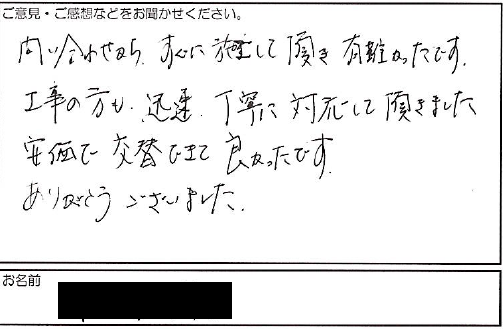 ご意見・ご感想などをお聞かせください。
問い合わせから、すぐに施工して頂き有難かったです。
工事の方も、迅速、丁寧に対応して頂きました
安価で交替できて良かったです。
ありがとうございました。
お名前